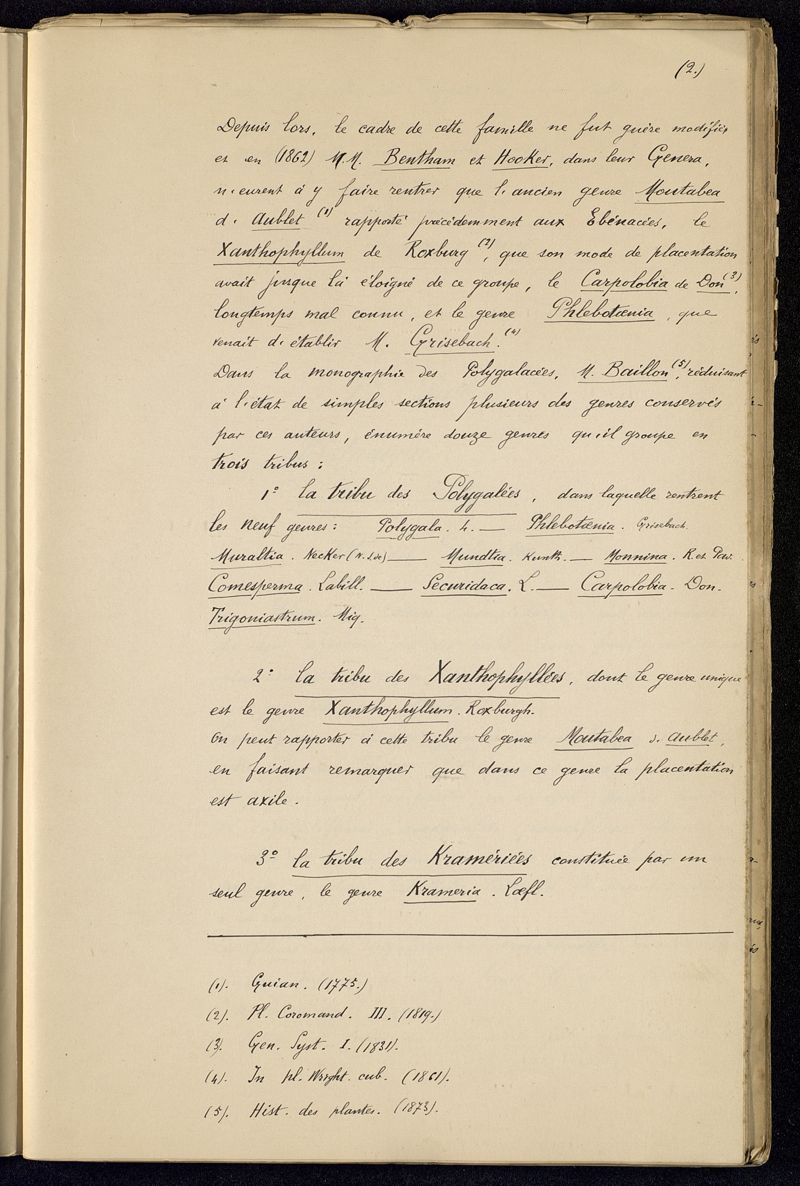 (2.)
Depuis lors, le cadre de cette famille ne fut guère modifiée
et en (1862) M.M. Bentham et Hooker, dans leur Genera,
n'eurent à y faire rentrer que l'ancien genre Moutabea
d'Aublet (1) rapporté précédemment aux Ebénacées, le
Xanthophyllum de Roxburg (2), que son mode de placentation
avait jusque là éloigné de ce groupe, le Carpolobia de Don (3),
longtemps mal connu, et le genre Phlebotænia, que
venait d'établir M. Grisebach. (4)
Dans la monographie des Polygalacées, M. Baillon (5), réduisant
à l'état de simples sections plusieurs des genres conservés
par ces auteurs, énumère douze genres qu'il groupe en
trois tribus :
1° la tribu des Polygalées, dans laquelle rentrent
les neuf genres : Polygala. L. — Phlebotænia. Grisebach.
Muraltia. Necker — Mundtia. Kunth. — Monnina. R. et Pav.
Comesperma. Labill. — Securidaca. L. — Carpolobia. Don.
Trigoniastrum. Miq.
2° la tribu des Xanthophyllées, dont le genre unique
est le genre Xanthophyllum. Roxburgh.
On peut rapporter à cette tribu le genre Moutabea d'Aublet,
en faisant remarquer que dans ce genre la placentation
est axile.
3° la tribu des Kramériées constituée par un
seul genre, le genre Krameria. Lœfl.
(1). Guian. (1775.)
(2). Pl. Coromand. III. (1819.)
(3). Gen. Syst. I. (1831).
(4). In pl. Wright. cub. (1861).
(5). Hist. des plantes. (1873).